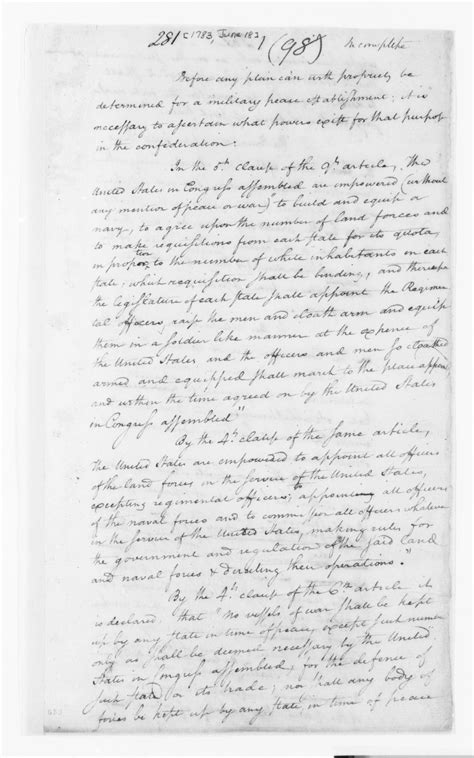 281 c 1783, June 18 1 (98) Incomplete
Before any plan can with propriety be
determined for a military peace establishment; it is
necessary to ascertain what powers exist for that purpose
in the confederation.
In the 5th clause of the 9th article, The
United States in Congress assembled are empowered (without
any mention of peace or war) "to build and equip a
navy, to agree upon the number of land forces and
to make requisitions from each state for its quota,
in proportion to the number of white inhabitants in each
state, which requisition shall be binding, and thereupon
the legislature of each state shall appoint the Regimen
tal officers, raise the men and cloath arm and equip
them in a soldier like manner at the expence of
the United States and the officers and men so cloathed
armed and equipped shall march to the place appointed
and within the time agreed on by the United States
in Congress assembled"
By the 4th clause of the same article,
the United States are empowered to appoint all officers
of the land forces in the service of the United States,
excepting regimental officers, to appoint all officers
of the naval forces and to commission all officers whatever
in the service of the United States, making rules for
the government and regulation of the said land
and naval forces & directing their operations."
By the 4th clause of the 6th article it
is declared that "No vessels of war shall be kept
up by any state in time of peace, except such number
only as shall be deemed necessary by the United
States in Congress assembled, for the defence of
such state or its trade; nor shall any body of
forces be kept up by any state, in time of peace